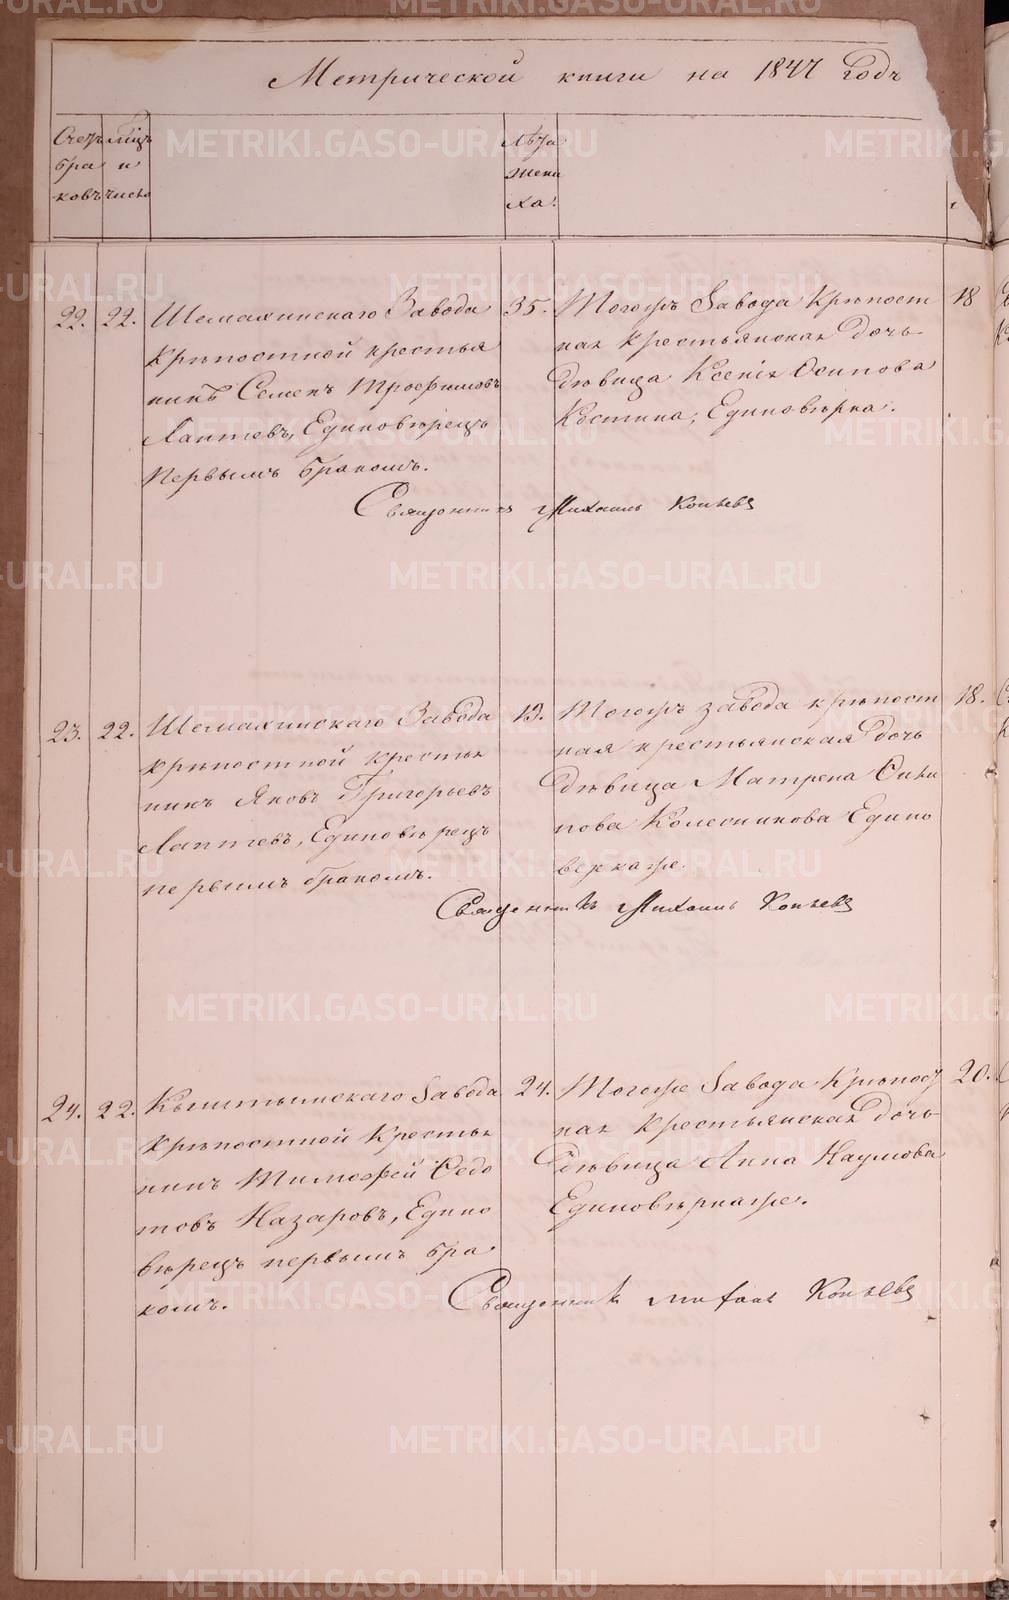 Метрической книги на 1847 Годъ
Счетъ бра ковъ
мѣсяцъ и число
Лѣта жени ха.
22. 22. Шемахинскаго Завода
Крѣпостной крестья
нинъ Семенъ Трофимовъ
Лаптевъ, Единовѣрецъ
первымъ бракомъ.
35.
Тогожъ Завода Крѣпост
ная крестьянская дочь
дѣвица Ксенія Осипова
Костина, Единовѣрка.
18
Священникъ Михаилъ Копьевъ
23. 22. Шемахинскаго Завода
крѣпостной крестья
нинъ Яковъ Григорьевъ
Лаптевъ, Единовѣрецъ
первымъ бракомъ.
19.
Тогожъ завода крѣпост
ная крестьянская дочь
дѣвица Матрена
Колесникова Едино
верка же.
18.
Священникъ Михаилъ Копьевъ
24. 22. Кыштымскаго Завода
крѣпостной Крестья
нинъ Тимофей Федо
товъ Назаровъ, Едино
вѣрецъ первымъ бра
комъ.
24.
Тогоже Завода Крѣпост
ная крестьянская дочь
дѣвица Анна Наумова
Единовѣрка же.
20.
Священникъ Михаилъ Копьевъ
METRIKI.GASO-URAL.RU